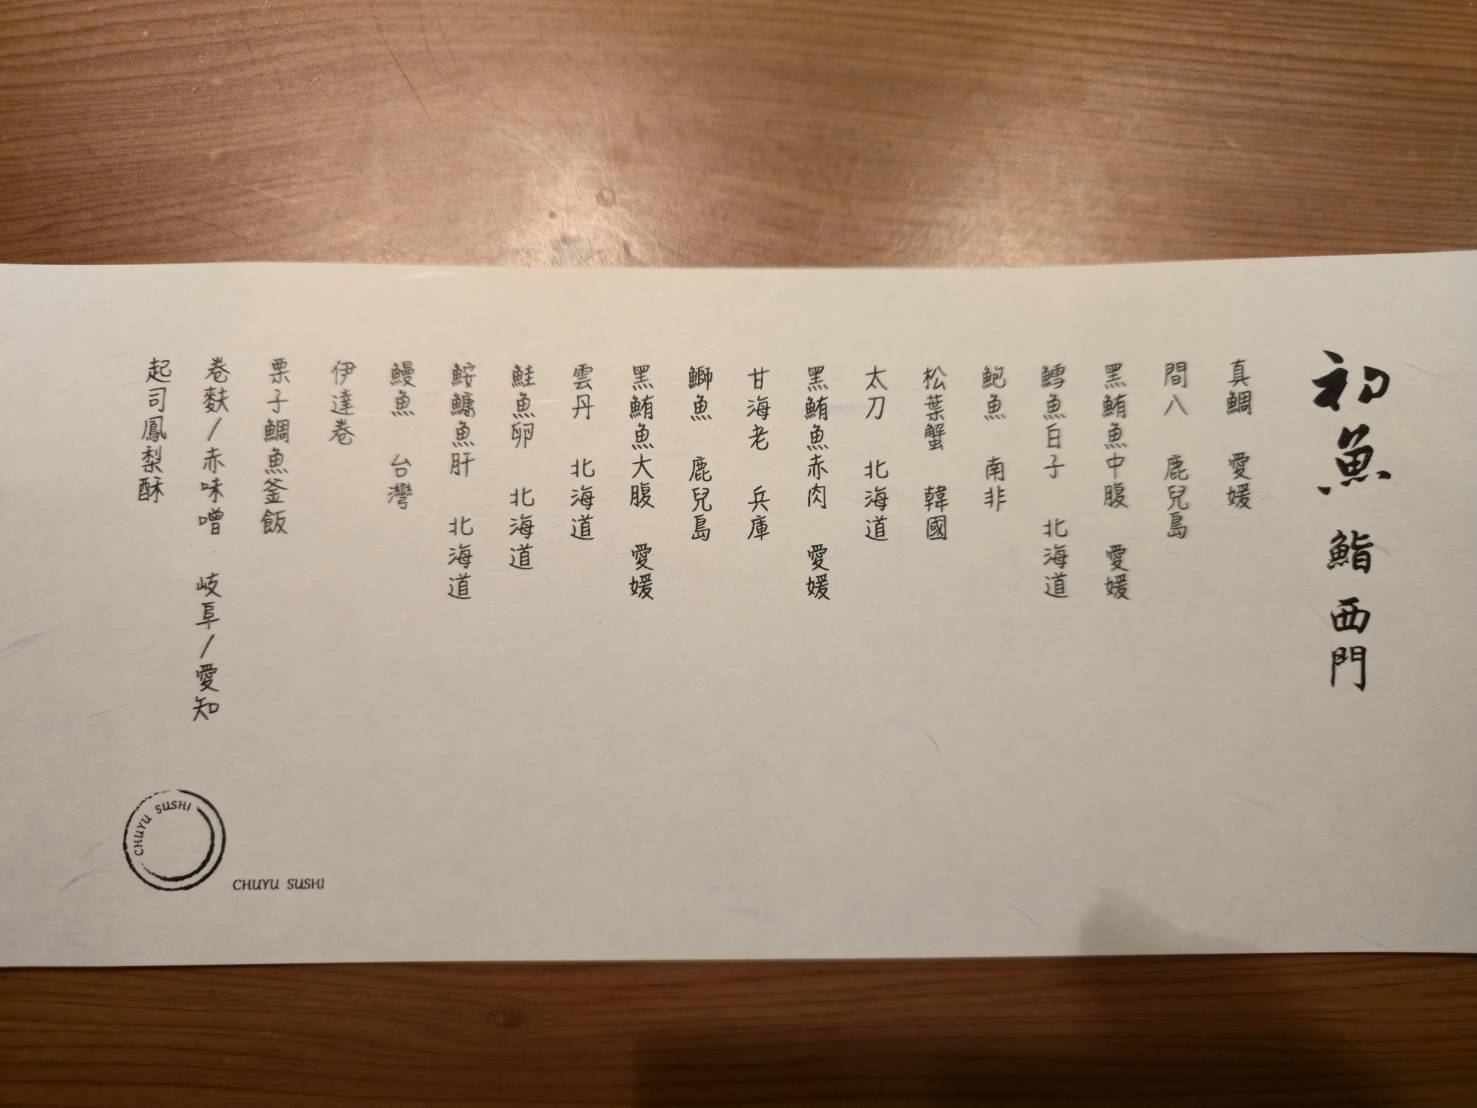 初魚 鮨 西門
真鯛 愛媛
間八 鹿兒島
黑鮪魚中腹 愛媛
鱈魚白子 北海道
鮑魚 南非
松葉蟹 韓國
太刀 北海道
黑鮪魚赤肉 愛媛
甘海老 兵庫
鰤魚 鹿兒島
黑鮪魚大腹 愛媛
雲丹 北海道
鮭魚卵 北海道
鮟鱇魚肝 北海道
鰻魚 台灣
伊達卷
栗子鯛魚釜飯
卷麩/赤味噌 岐阜/愛知
起司鳳梨酥
CHUYU SUSHI
CHUYU SUSHI